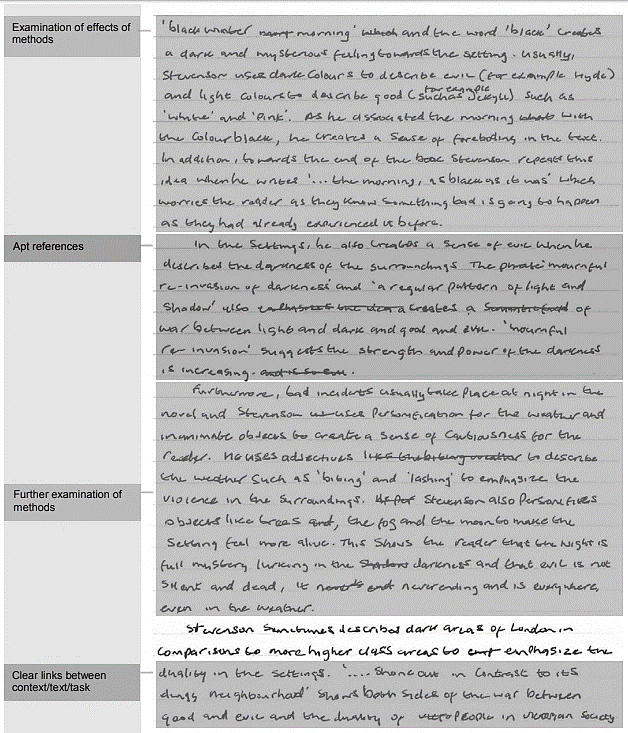 Examination of effects of
methods
'black winter morning' and the word 'black' creates
a dark and mysterious feeling towards the setting. Usually,
Stevenson uses dark colours to describe evil (for example Hyde)
for example
and light colours to describe good (such as Jekyll) such as
'white' and 'pink'. As he associated the morning with
the colour black, he creates a sense of foreboding in the text.
In addition, towards the end of the book Stevenson repeats this
idea when he writes '... the morning, as black as it was' which
worries the reader as they know something bad is going to happen
as they had already experienced it before.
Apt references
In the settings, he also creates a sense of evil when he
describes the darkness of the surroundings. The phrase 'mournful
re-invasion of darkness' and 'a regular pattern of light and
shadow' also creates a of
war between light and dark and good and evil. 'mournful
re-invasion' suggests the strength and power of the darkness
is increasing.
Furthermore, bad incidents usually take place at night in the
novel and Stevenson uses personification for the weather and
inanimate objects to create a sense of cautiousness for the
reader. He uses adjectives to describe
the weather such as 'biting' and 'lashing' to emphasize the
Further examination of
methods
violence in the surroundings. Stevenson also personifies
objects like trees, the fog and the moon to make the
setting feel more alive. This shows the reader that the night is
full mystery lurking in the darkness and that evil is not
silent and dead, it neverending and is everywhere,
even in the weather.
Stevenson sometimes describes dark areas of London in
comparisons to more higher class areas to emphasize the
Clear links between
context/text/task
duality in the settings. '.... Shone out in contrast to its
dingy neighbourhood' shows both sides of the war between
good and evil and the duality of people in Victorian society